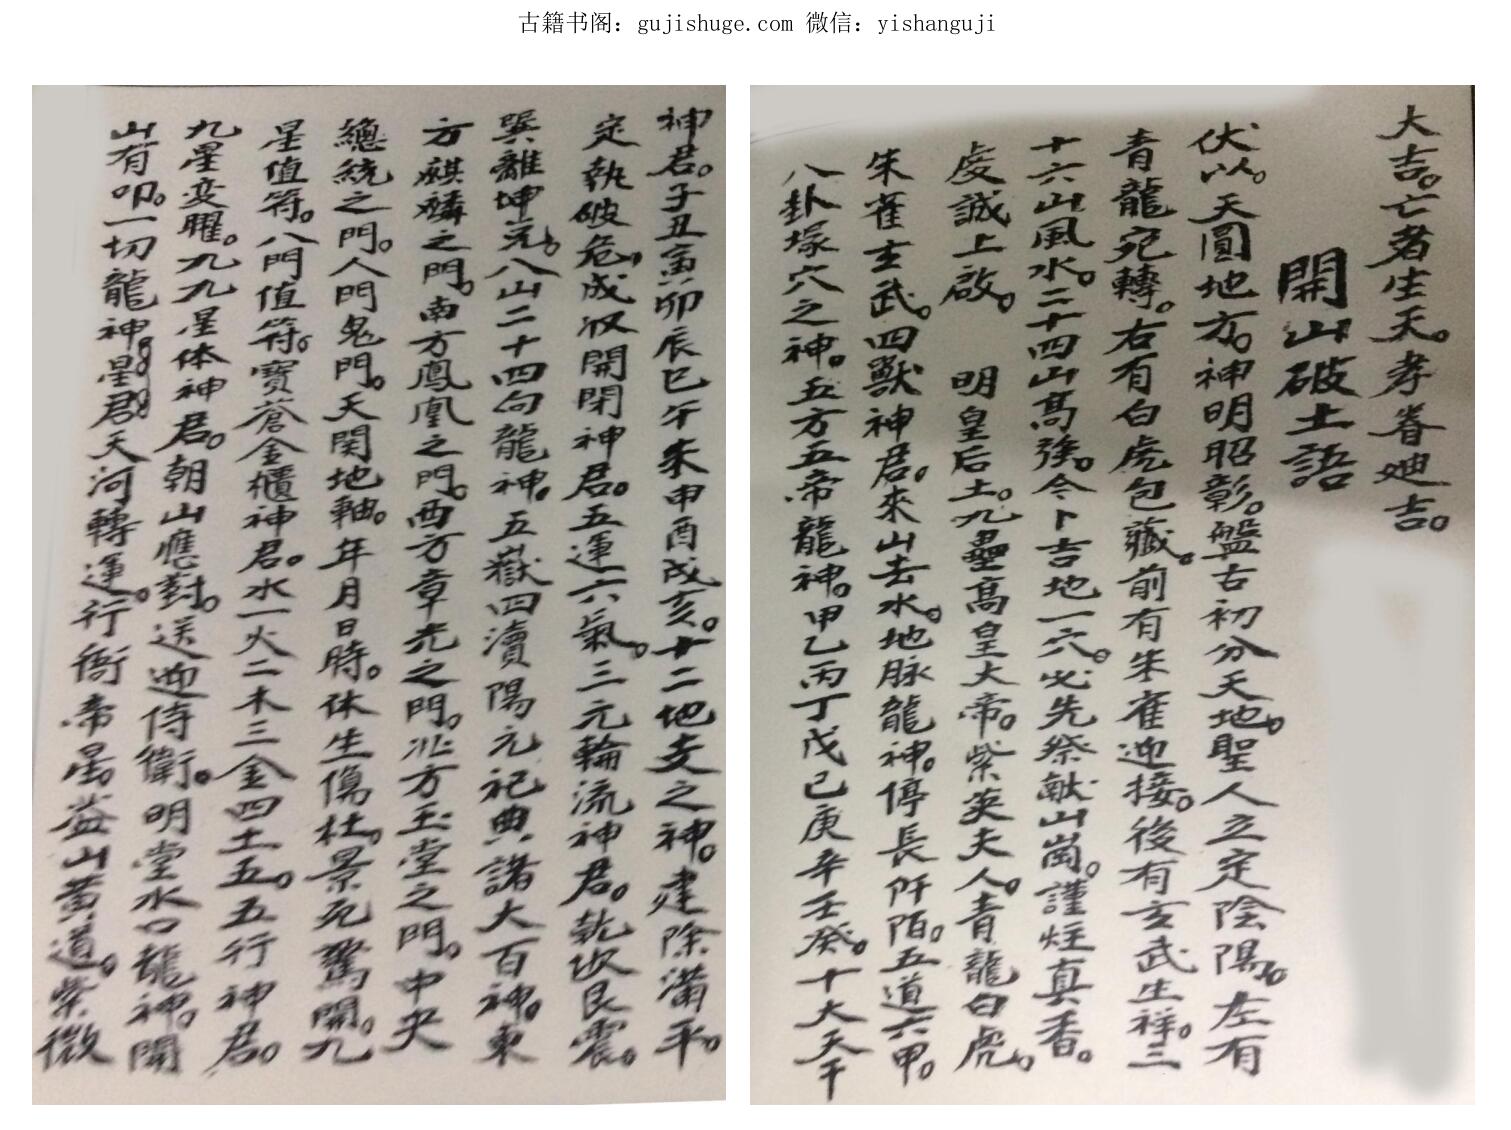 古籍书阁：gujishuge.com 微信：yishanguji
大吉。亡者生天。孝眷迪吉。
開山破土語
伏以。天圓地方。神明昭彰。盤古初分天地。聖人立定陰陽。左有
青龍宛轉。右有白虎包藏。前有朱雀迎接。後有玄武生祥。三
十六山風水。二十四山高強。今卜吉地一穴。必先祭献山崗。謹炷真香。
虔誠上啟。 明皇后土。九壘高皇大帝。紫英夫人。青龍白虎。
朱雀玄武。四獸神君。來山去水。地脉龍神。停長阡陌。五道六甲。
八卦塚穴之神。五方五帝龍神。甲乙丙丁戊己庚辛壬癸。十大天干
神君。子丑寅卯辰巳午未申酉戌亥。十二地支之神。建除滿平。
定執破危。成收開閉神君。五運六氣。三元輪流神君。乾坎艮震。
巽離坤兌。八山二十四向龍神。五嶽四瀆陽元祀典諸大百神。東
方麒麟之門。南方鳳凰之門。西方章光之門。北方玉堂之門。中央
總統之門。人門鬼門。天関地軸。年月日時。休生傷杜。景死驚開。九
星值符。八門值符。寶蒼金櫃神君。水一火二木三金四土五。五行神君。
九星变曜。九九星体神君。朝山應對。送迎侍衛。明堂水口龍神。開
山有叩。一切龍神。星君天河轉運。行衙帝星。蓋山黄道。紫微